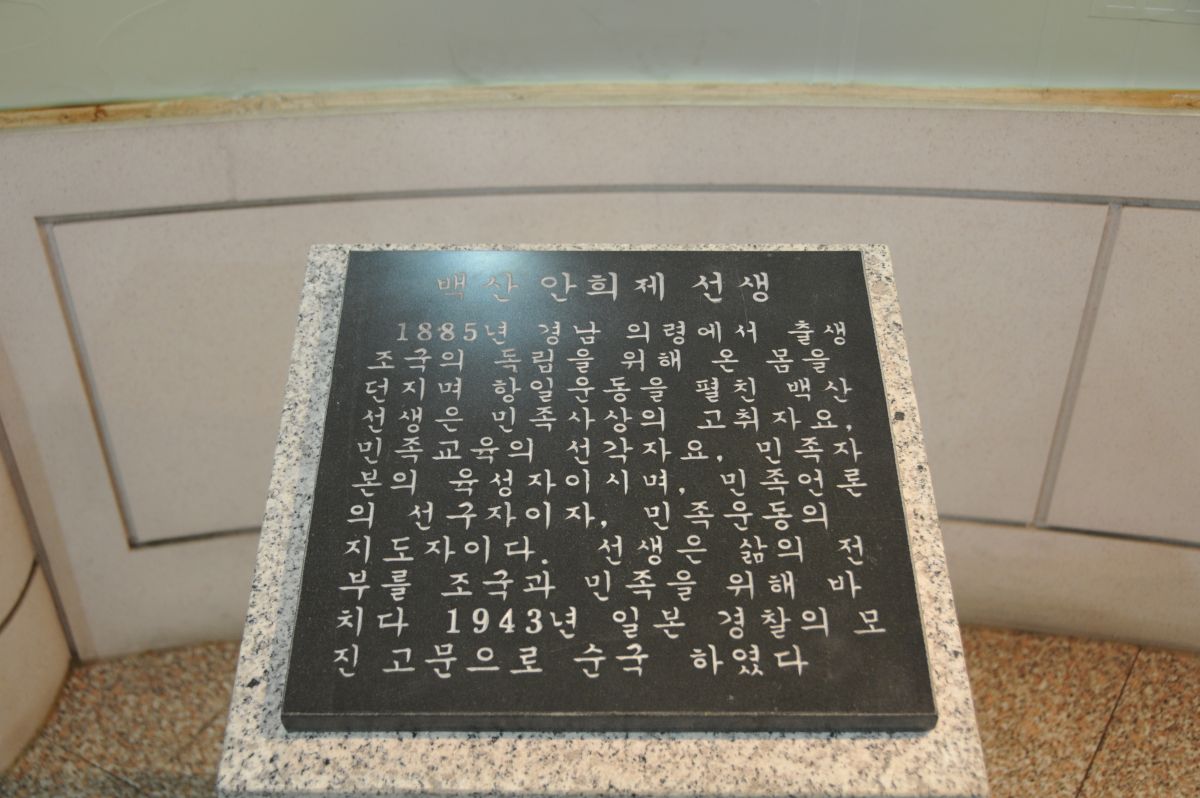 백산 안희제 선생
1885년 경남 의령에서 출생
조국의 독립을 위해 온 몸을
던지며 항일운동을 펼친 백산
선생은 민족사상의 고취자요,
민족교육의 선각자요, 민족자
본의 육성자이시며, 민족언론
의 선구자이자, 민족운동의
지도자이다. 선생은 삶의 전
부를 조국과 민족을 위해 바
치다 1943년 일본 경찰의 모
진 고문으로 순국 하였다